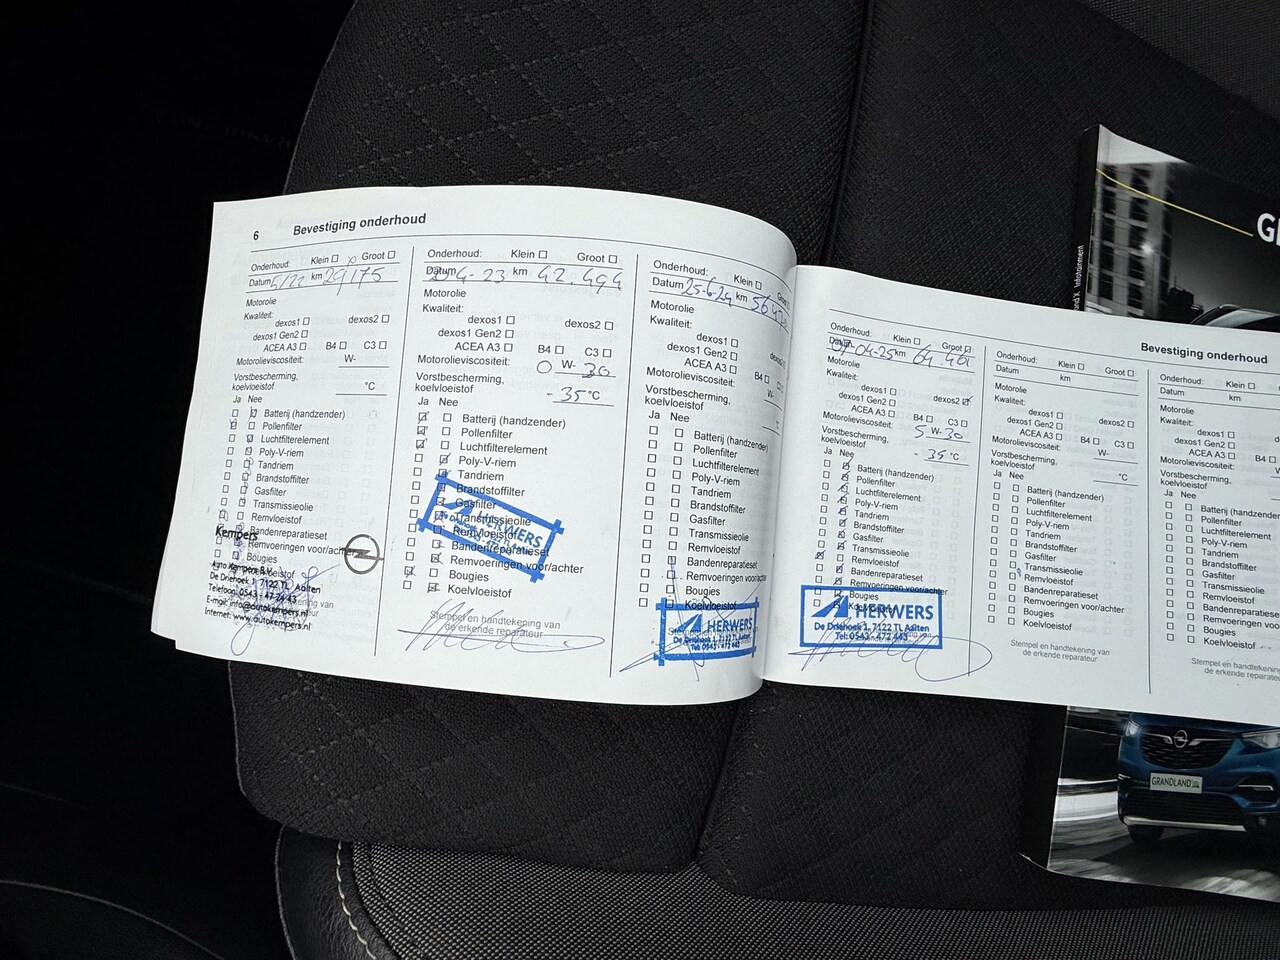 6 Bevestiging onderhoud
Onderhoud: Klein Groot
Datum 5/22 km 29175
Motorolie
Kwaliteit:
dexos1 dexos2
dexos1 Gen2
ACEA A3 B4 C3
Motorolieviscositeit: W-
Vorstbescherming,
koelvloeistof °C
Ja Nee
Batterij (handzender)
Pollenfilter
Luchtfilterelement
Poly-V-riem
Tandriem
Brandstoffilter
Gasfilter
Transmissieolie
Remvloeistof
Bandenreparatieset
Remvoeringen voor/achter
Bougies
Kempers
Auto Kempers B.V.
De Driehoek 1, 7122 TL Aalten
Telefoon: 0543 - 47 24 43
E-mail: info@autokempers.nl
Internet: www.autokempers.nl
Onderhoud: Klein Groot
Datum 4-23 km 42.494
Motorolie
Kwaliteit:
dexos1 dexos2
dexos1 Gen2
ACEA A3 B4 C3
Motorolieviscositeit: O W- 30
Vorstbescherming,
koelvloeistof - 35 °C
Ja Nee
Batterij (handzender)
Pollenfilter
Luchtfilterelement
Poly-V-riem
Tandriem
Brandstoffilter
Gasfilter
Transmissieolie
Remvloeistof
Bandenreparatieset
Remvoeringen voor/achter
Bougies
Koelvloeistof
HERWERS
Stempel en handtekening van
de erkende reparateur
Onderhoud: Klein
Datum 25-6-24 km
Motorolie
Kwaliteit:
dexos1
dexos1 Gen2
ACEA A3 B4
Motorolieviscositeit:
Vorstbescherming,
koelvloeistof
Ja Nee
Batterij (handzender)
Pollenfilter
Luchtfilterelement
Poly-V-riem
Tandriem
Brandstoffilter
Gasfilter
Transmissieolie
Remvloeistof
Bandenreparatieset
Remvoeringen voor/achter
Bougies
Koelvloeistof
HERWERS
De Driehoek 1, 7122 TL Aalten
Tel: 0543 - 472 443
Bevestiging onderhoud
Onderhoud: Klein Groot
Datum 01-04-25 km 64.401
Motorolie
Kwaliteit:
dexos1 dexos2
dexos1 Gen2
ACEA A3 B4 C3
Motorolieviscositeit: 5 W- 30
Vorstbescherming,
koelvloeistof - 35 °C
Ja Nee
Batterij (handzender)
Pollenfilter
Luchtfilterelement
Poly-V-riem
Tandriem
Brandstoffilter
Gasfilter
Transmissieolie
Remvloeistof
Bandenreparatieset
Remvoeringen voor/achter
Bougies
Koelvloeistof
HERWERS
De Driehoek 1, 7122 TL Aalten
Tel: 0543 - 472 443
Onderhoud: Klein Groot
Datum km
Motorolie
Kwaliteit:
dexos1 dexos2
dexos1 Gen2
ACEA A3 B4 C3
Motorolieviscositeit: W-
Vorstbescherming,
koelvloeistof °C
Ja Nee
Batterij (handzender)
Pollenfilter
Luchtfilterelement
Poly-V-riem
Tandriem
Brandstoffilter
Gasfilter
Transmissieolie
Remvloeistof
Bandenreparatieset
Remvoeringen voor/achter
Bougies
Koelvloeistof
Stempel en handtekening van
de erkende reparateur
Onderhoud: Klein
Datum km
Motorolie
Kwaliteit:
dexos1
dexos1 Gen2
ACEA A3 B4
Motorolieviscositeit:
Vorstbescherming,
koelvloeistof
Ja Nee
Batterij (handzender)
Pollenfilter
Luchtfilterelement
Poly-V-riem
Tandriem
Brandstoffilter
Gasfilter
Transmissieolie
Remvloeistof
Bandenreparatieset
Remvoeringen voor/achter
Bougies
Koelvloeistof
Stempel en handtekening
de erkende reparateur
Infotainment
GRANDLAND X